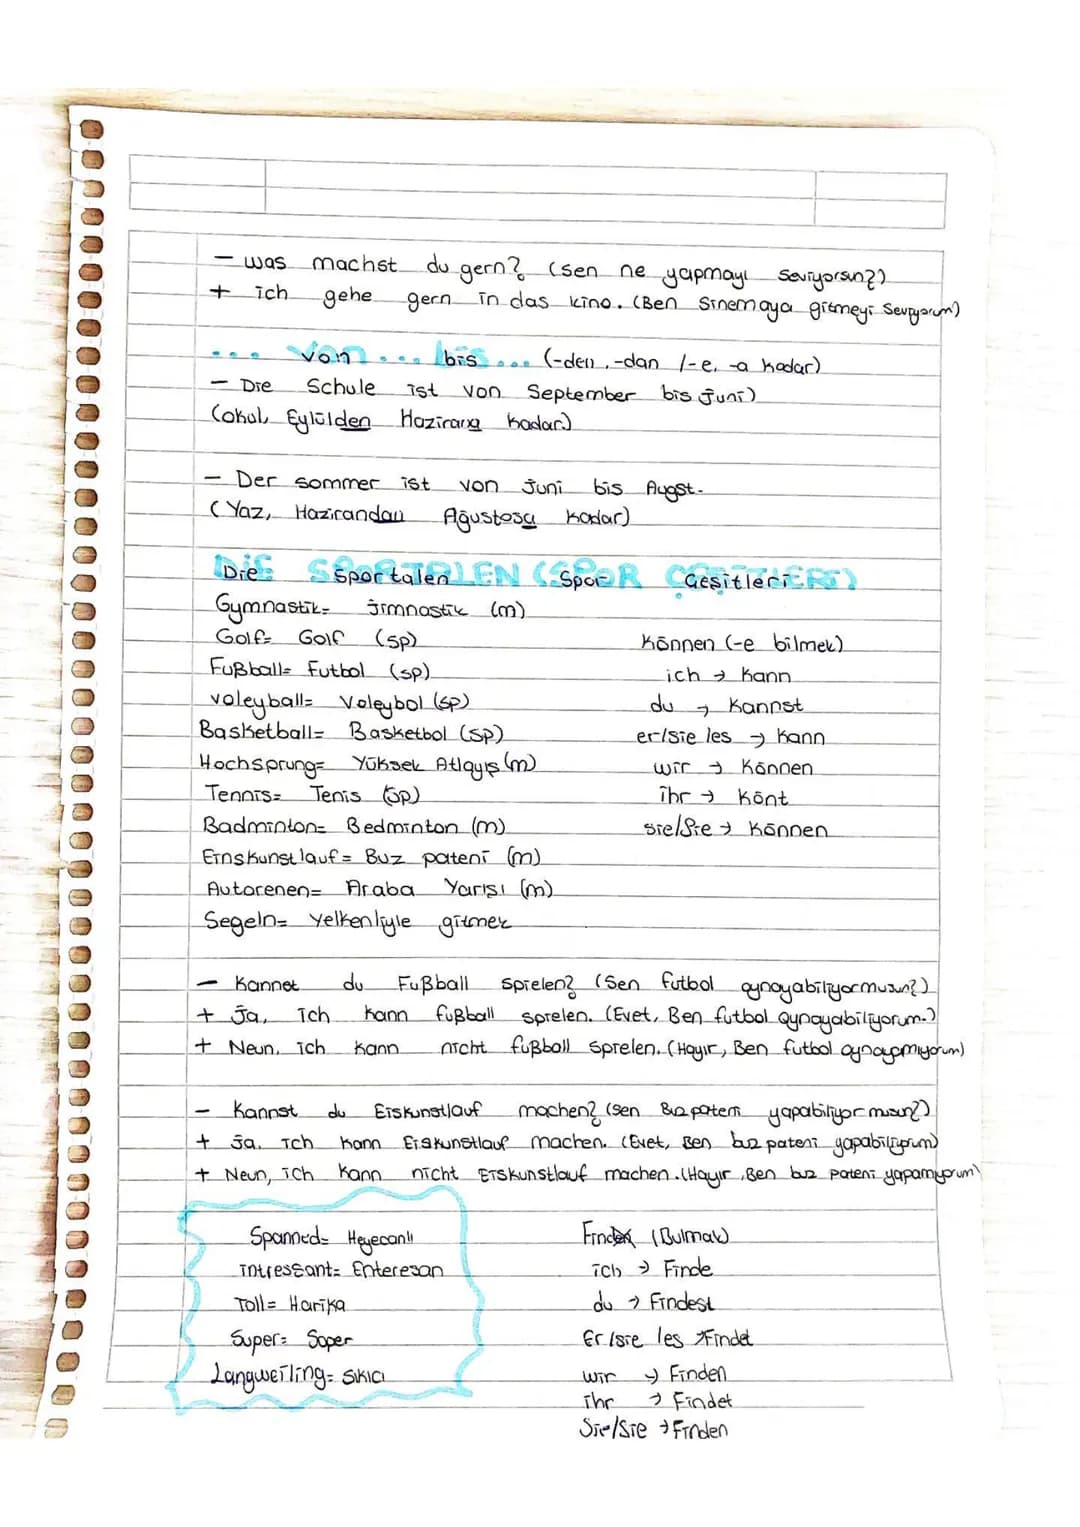 - was machst du gern? (sen ne yapmayı seviyorsun?)
+ ich gehe gern in das kino. (Ben sinemaya gitmeyi seviyorum)
... von ... bis ... (-den, -dan /-e, -a kadar)
- Die Schule ist von September bis Juni)
(okul, Eylülden Hazirana kadar)
- Der sommer ist von Juni bis Augst.
(Yaz, Hazirandan Ağustosa kadar)
Die Sportalen (Spor Çeşitleri)
Gymnastik= Jimnastik (m)
Golf= Golf (sp)
Fußball= Futbol (sp)
voleyball= Voleybol (sp)
Basketball= Basketbol (sp)
Hochsprung= Yüksek Atlayış (m)
Tennis= Tenis (sp)
Badminton= Bedminton (m)
Eınskunstlauf= Buz pateni (m)
Autorenen= Araba Yarışı (m)
Segeln= Yelkenliyle gitmek
können (-e bilmek)
ich → kann
du → kannst
er/sie les → kann
wir → können
ihr → könt
sie/Sie → können
- Kannst du Fußball spielen? (Sen futbol oynayabiliyormusun?)
+ Ja, Ich kann fußball spielen. (Evet, Ben futbol oynayabiliyorum.)
+ Neun, ich kann nicht fußball spielen. (Hayır, Ben futbol oynayamıyorum)
- Kannst du Eiskunstlauf machen? (Sen Buz pateni yapabiliyor musun?)
+ Ja, Ich kann Eiskunstlauf machen. (Evet, Ben buz pateni yapabiliyorum)
+ Neun, ich kann nicht Eiskunstlauf machen. (Hayır, Ben buz pateni yapamıyorum)
Spanned= Heyecanlı
intressant= Enteresan
Toll= Harika
Super= Süper
Langweiling= sıkıcı
Finden (Bulmak)
ich → Finde
du → Findest
Er/sie les → Findet
wir → Finden
ihr → Findet
Sie/Sie → Finden